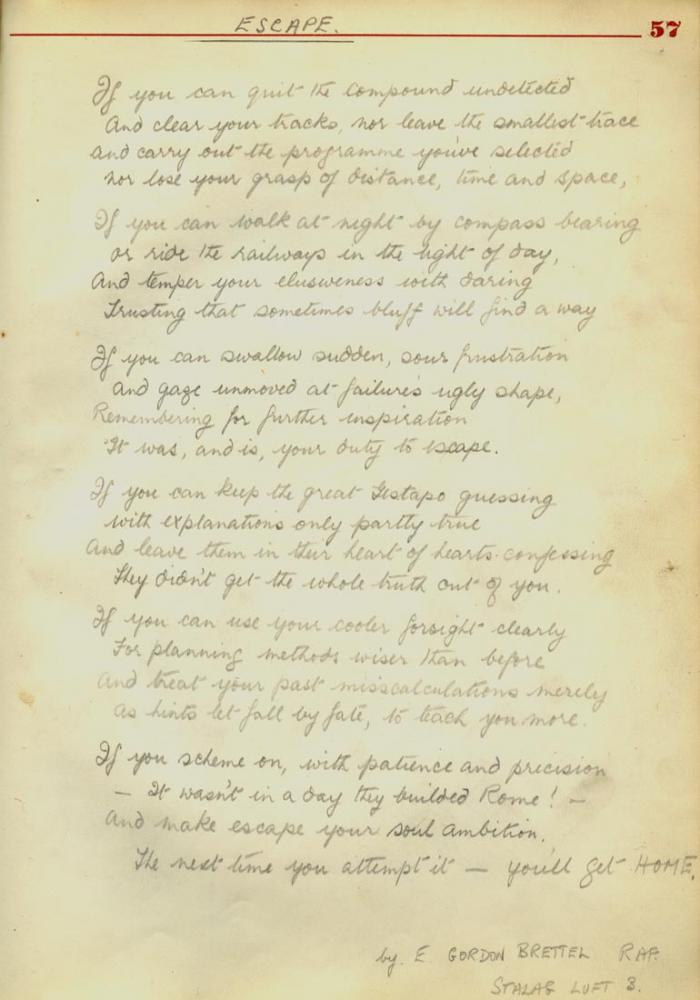 ESCAPE.
57
If you can quit the compound undetected
And clear your tracks, nor leave the smallest trace
and carry out the programme you've selected
nor lose your grasp of distance, time and space,
If you can walk at night by compass bearing
or ride the railways in the light of day,
And temper your elusiveness with daring
Trusting that sometimes bluff will find a way
If you can swallow sudden, sour frustration
and gaze unmoved at failure's ugly shape,
Remembering for further inspiration
It was, and is, your duty to escape.
If you can keep the great Gestapo guessing
with explanations only partly true
And leave them in their heart of hearts confessing
They didn't get the whole truth out of you.
If you can use your cooler forsight clearly
For planning methods wiser than before
And treat your past misscalculations merely
as hints let fall by fate, to teach you more.
If you scheme on, with patience and precision
— It wasn't in a day they builded Rome! —
And make escape your soul ambition,
The next time you attempt it — you'll get HOME.
by. E. GORDON BRETTEL RAF.
STALAG LUFT 3.